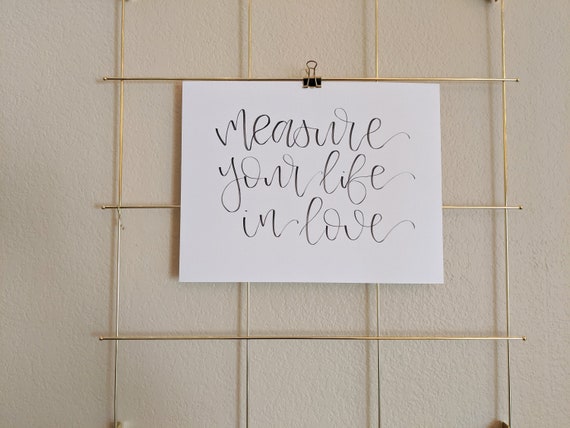 measure
your life
in love